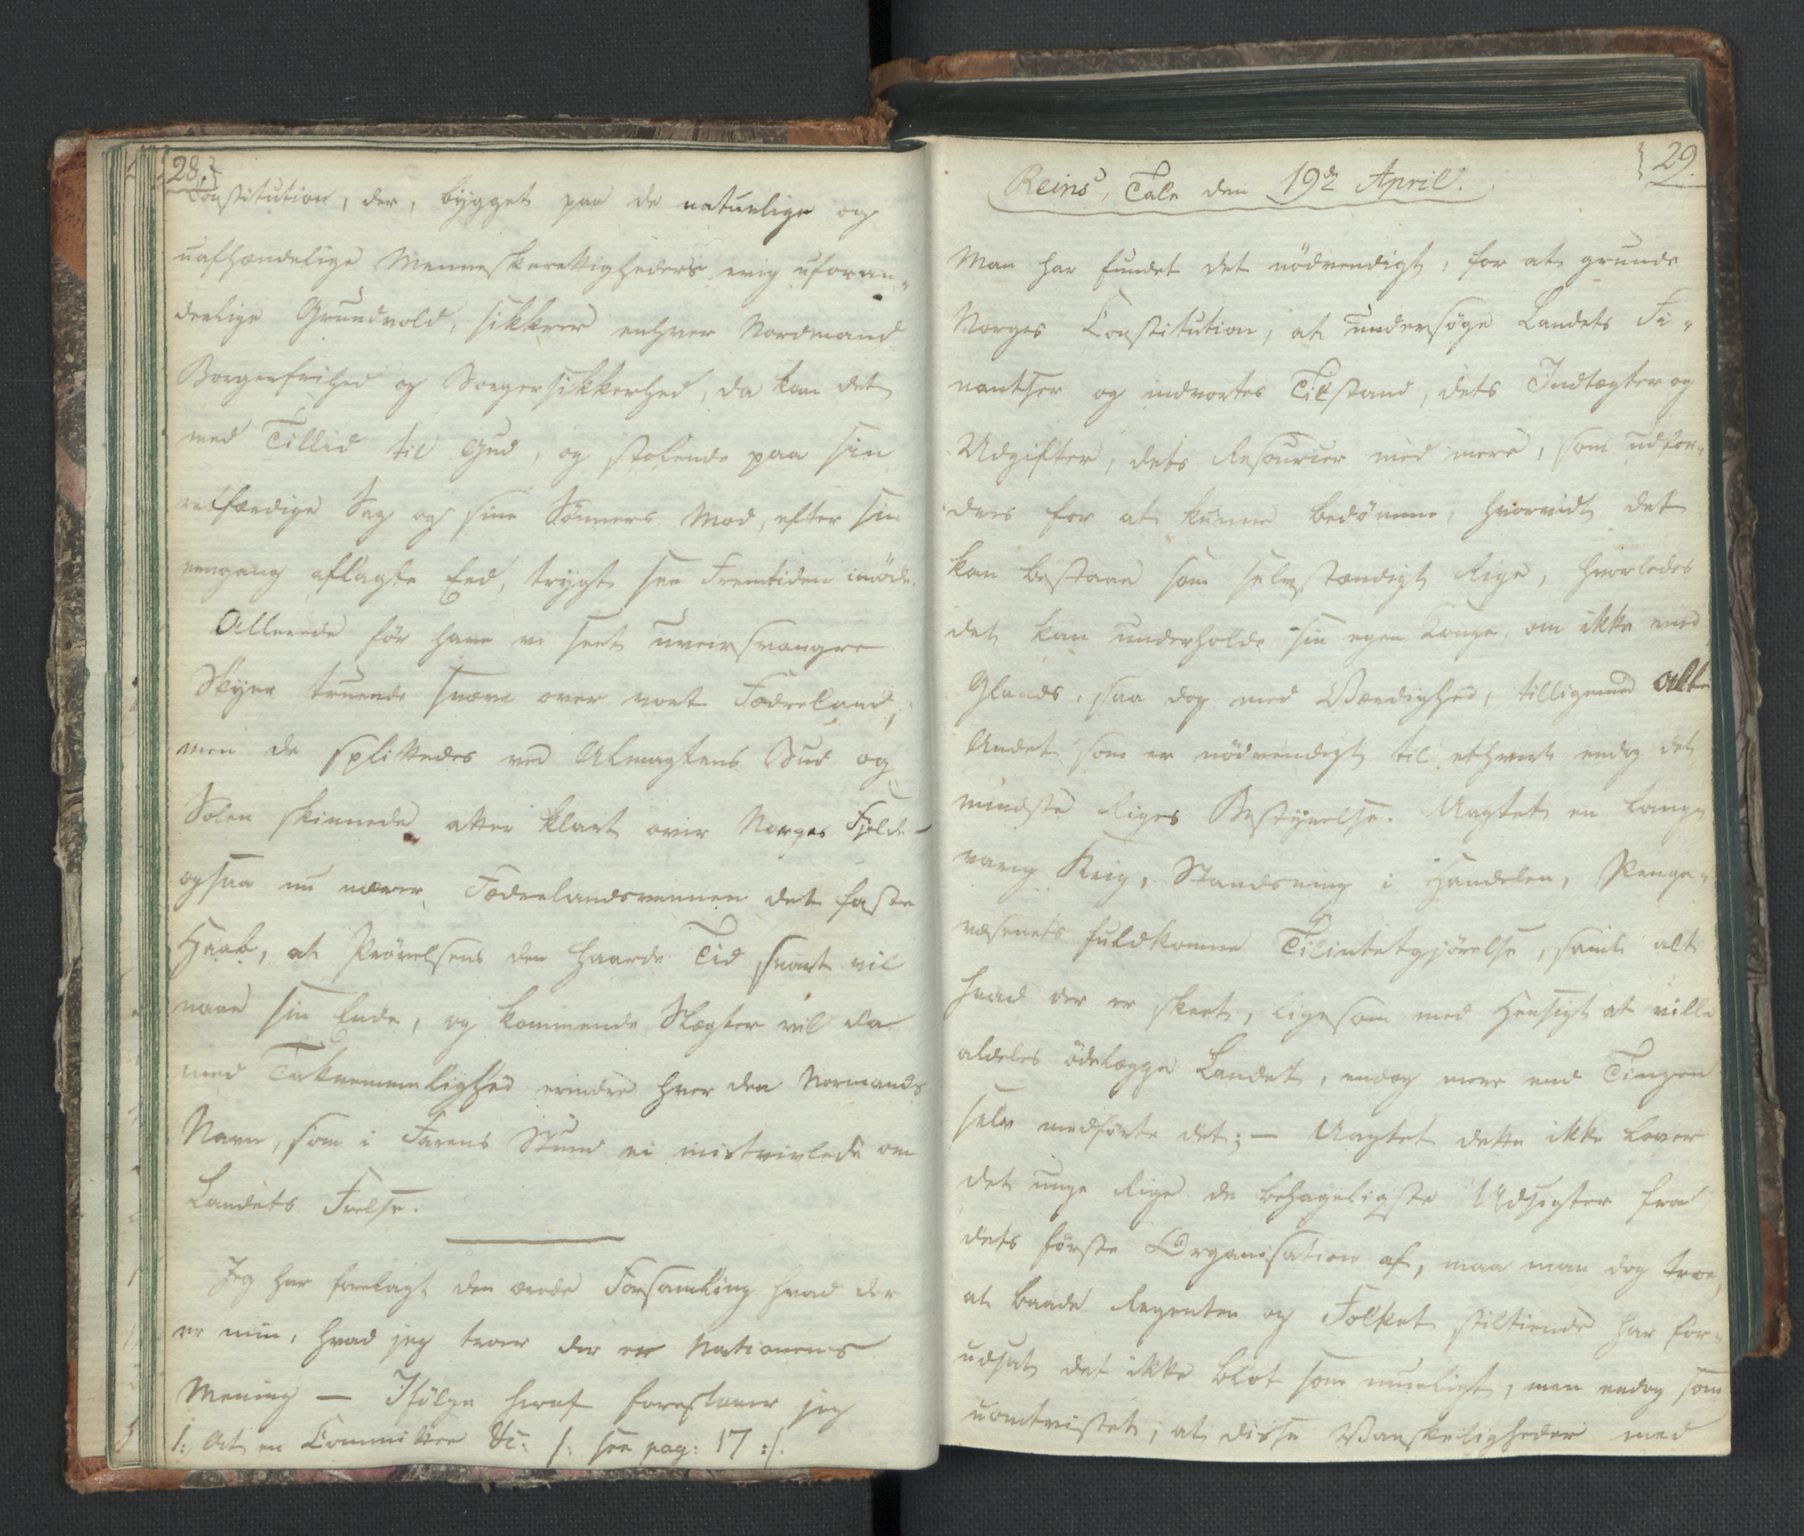 28.
Constitution, der, bygget paa de naturlige og
uafhændelige Menneskerettigheders evig uforan-
derlige Grundvold, sikkrer enhver Nordmand
Borgerfrihed og Borgersikkerhed, da kan det
med Tillid til Gud, og stolende paa sin
retfærdige Sag og sine Sönners Mod, efter sin
eengang aflagte Eed, trygt see Fremtiden imöde.
Allereede för have vi seet uveirsvangre
Skyer truende svæve over vort Födreland,
men de splittedes ved Almagtens Bud og
Solen skinnede atter klart over Norges Fjelde -
ogsaa nu nærer Födrelandsvennen det faste
Haab, at Prövelsens den haarde Tid snart vil
naae sin Ende, og kommende Slægter vil da
med Taknemmelighed erindre hver den Normands
Navn, som i Farens Stund ei mistvivlede om
Landets Frelse.
Jeg har forelagt den ærede Forsamling hvad der
er min, hvad jeg troer der er Nationens
Mening — Ifölge heraf foreslaaer jeg
/: At en Committee &c: /: see pag: 17 :/.
29.
Reins, Tale den 19de April.
Man har fundet det nödvendigt, for at grunde
Norges Constitution, at undersöge Landets Fi-
nantser og indvortes Tilstand, dets Indtægter og
Udgifter, dets Resourcer med mere, som udfor-
dres for at kunne bedömme, hvorvidt det
kan bestaae som selvstændigt Rige, hvorledes
det kan underholde sin egen Konge, om ikke med
Glands, saa dog med Værdighed, tilligemed alt
Andet som er nödvendigt til ethvert endog det
mindste Riges Bestyrelse. Uagtet en lang-
varig Krig, Standsning i Handelen, Penge-
væsenets fuldkomne Tilintetgjörelse, samt alt
hvad der er skeet, ligesom med Hensigt at ville
aldeles ödelægge Landet, endog mere end Tingen
selv medförte det; — Uagtet dette ikke lover
det unge Rige de behageligste Udsigter fra
dets förste Organisation af, maa man dog troe,
at baade Regenten og Folket stiltiende har for-
udsat det ikke blot som mueligt, men endog som
uomtvistet, at disse Vanskeligheder med